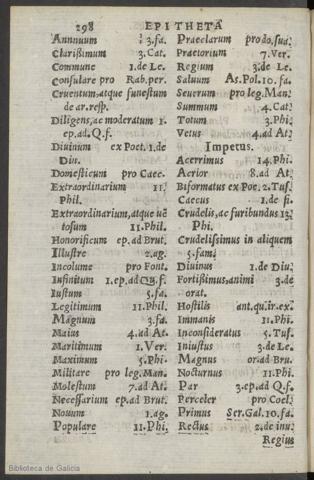 298 EPITHETA
Annuum 3.fa.
Clarissimum 3.Cat.
Commune 1.de Le.
Consulare pro Rab.per.
Cruentum, atque funestum
de ar.resp.
Diligens, ac moderatum 1.
ep.ad Q.f.
Diuinum ex Poet.1.de
Diu.
Domesticum pro Caec.
Extraordinarium 11.
Phil.
Extraordinarium, atque uē
tosum 11.Phil.
Honorificum ep.ad Brut.
Illustre 2.ag.
Incolume pro Font.
Infinitum 1.ep.ad Qu.f.
Iustum 5.fa.
Legitimum 11.Phil.
Magnum 3.fa.
Maius 4.ad At.
Maritimum 1.Ver.
Maximum 5.Phi.
Militare pro leg.Man.
Molestum 7.ad At.
Necessarium ep.ad Brut.
Nouum 1.ag.
Populare 11.Phi.
Praeclarum pro do.sua.
Praetorium 7.Ver.
Regium 3.de Le.
Saluum As.Pol.10.fa.
Seuerum pro leg.Man.
Summum 4.Cat.
Totum 3.Phi.
Vetus 4.ad At.
Impetus.
Acerrimus 14.Phi.
Acrior 8.ad At.
Biformatus ex Poe.2.Tus.
Caecus 1.de fi.
Crudelis, ac furibundus 13.
Phi.
Crudelissimus in aliquem
5.fam.
Diuinus 1.de Diu.
Fortissimus, animi 3.de
orat.
Hostilis ant.qu.ir.ex.
Immanis 11.Phi.
Inconsideratus 5.Tus.
Iniustus 3.de Le.
Magnus or.ad Bru.
Nocturnus 11.Phi.
Par 3.ep.ad Q.f.
Perceler pro Coel.
Primus Ser.Gal.10.fa.
Rectus 2.de inu.
Regius
Biblioteca de Galicia